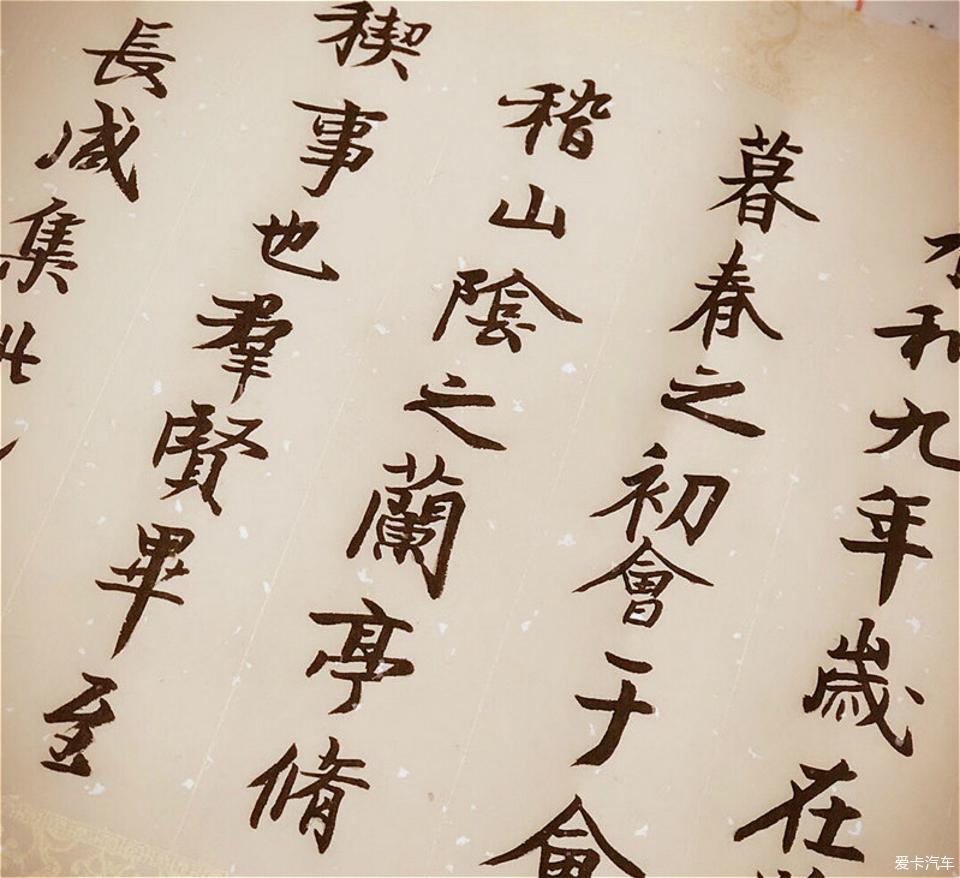 和九年歲在
暮春之初會于會
稽山陰之蘭亭脩
稧事也羣賢畢至
長咸集此
爱卡汽车